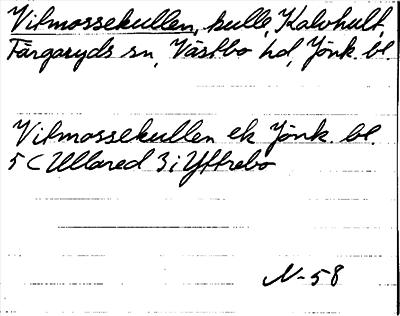 Vitmossekullen, kulle, Kalvhult,
Färgaryds sn, Västbo hd, Jönk. bl.
Vitmossekullen ek Jönk. bl.
5 C Ullared 3 i Yttrebo
N-58